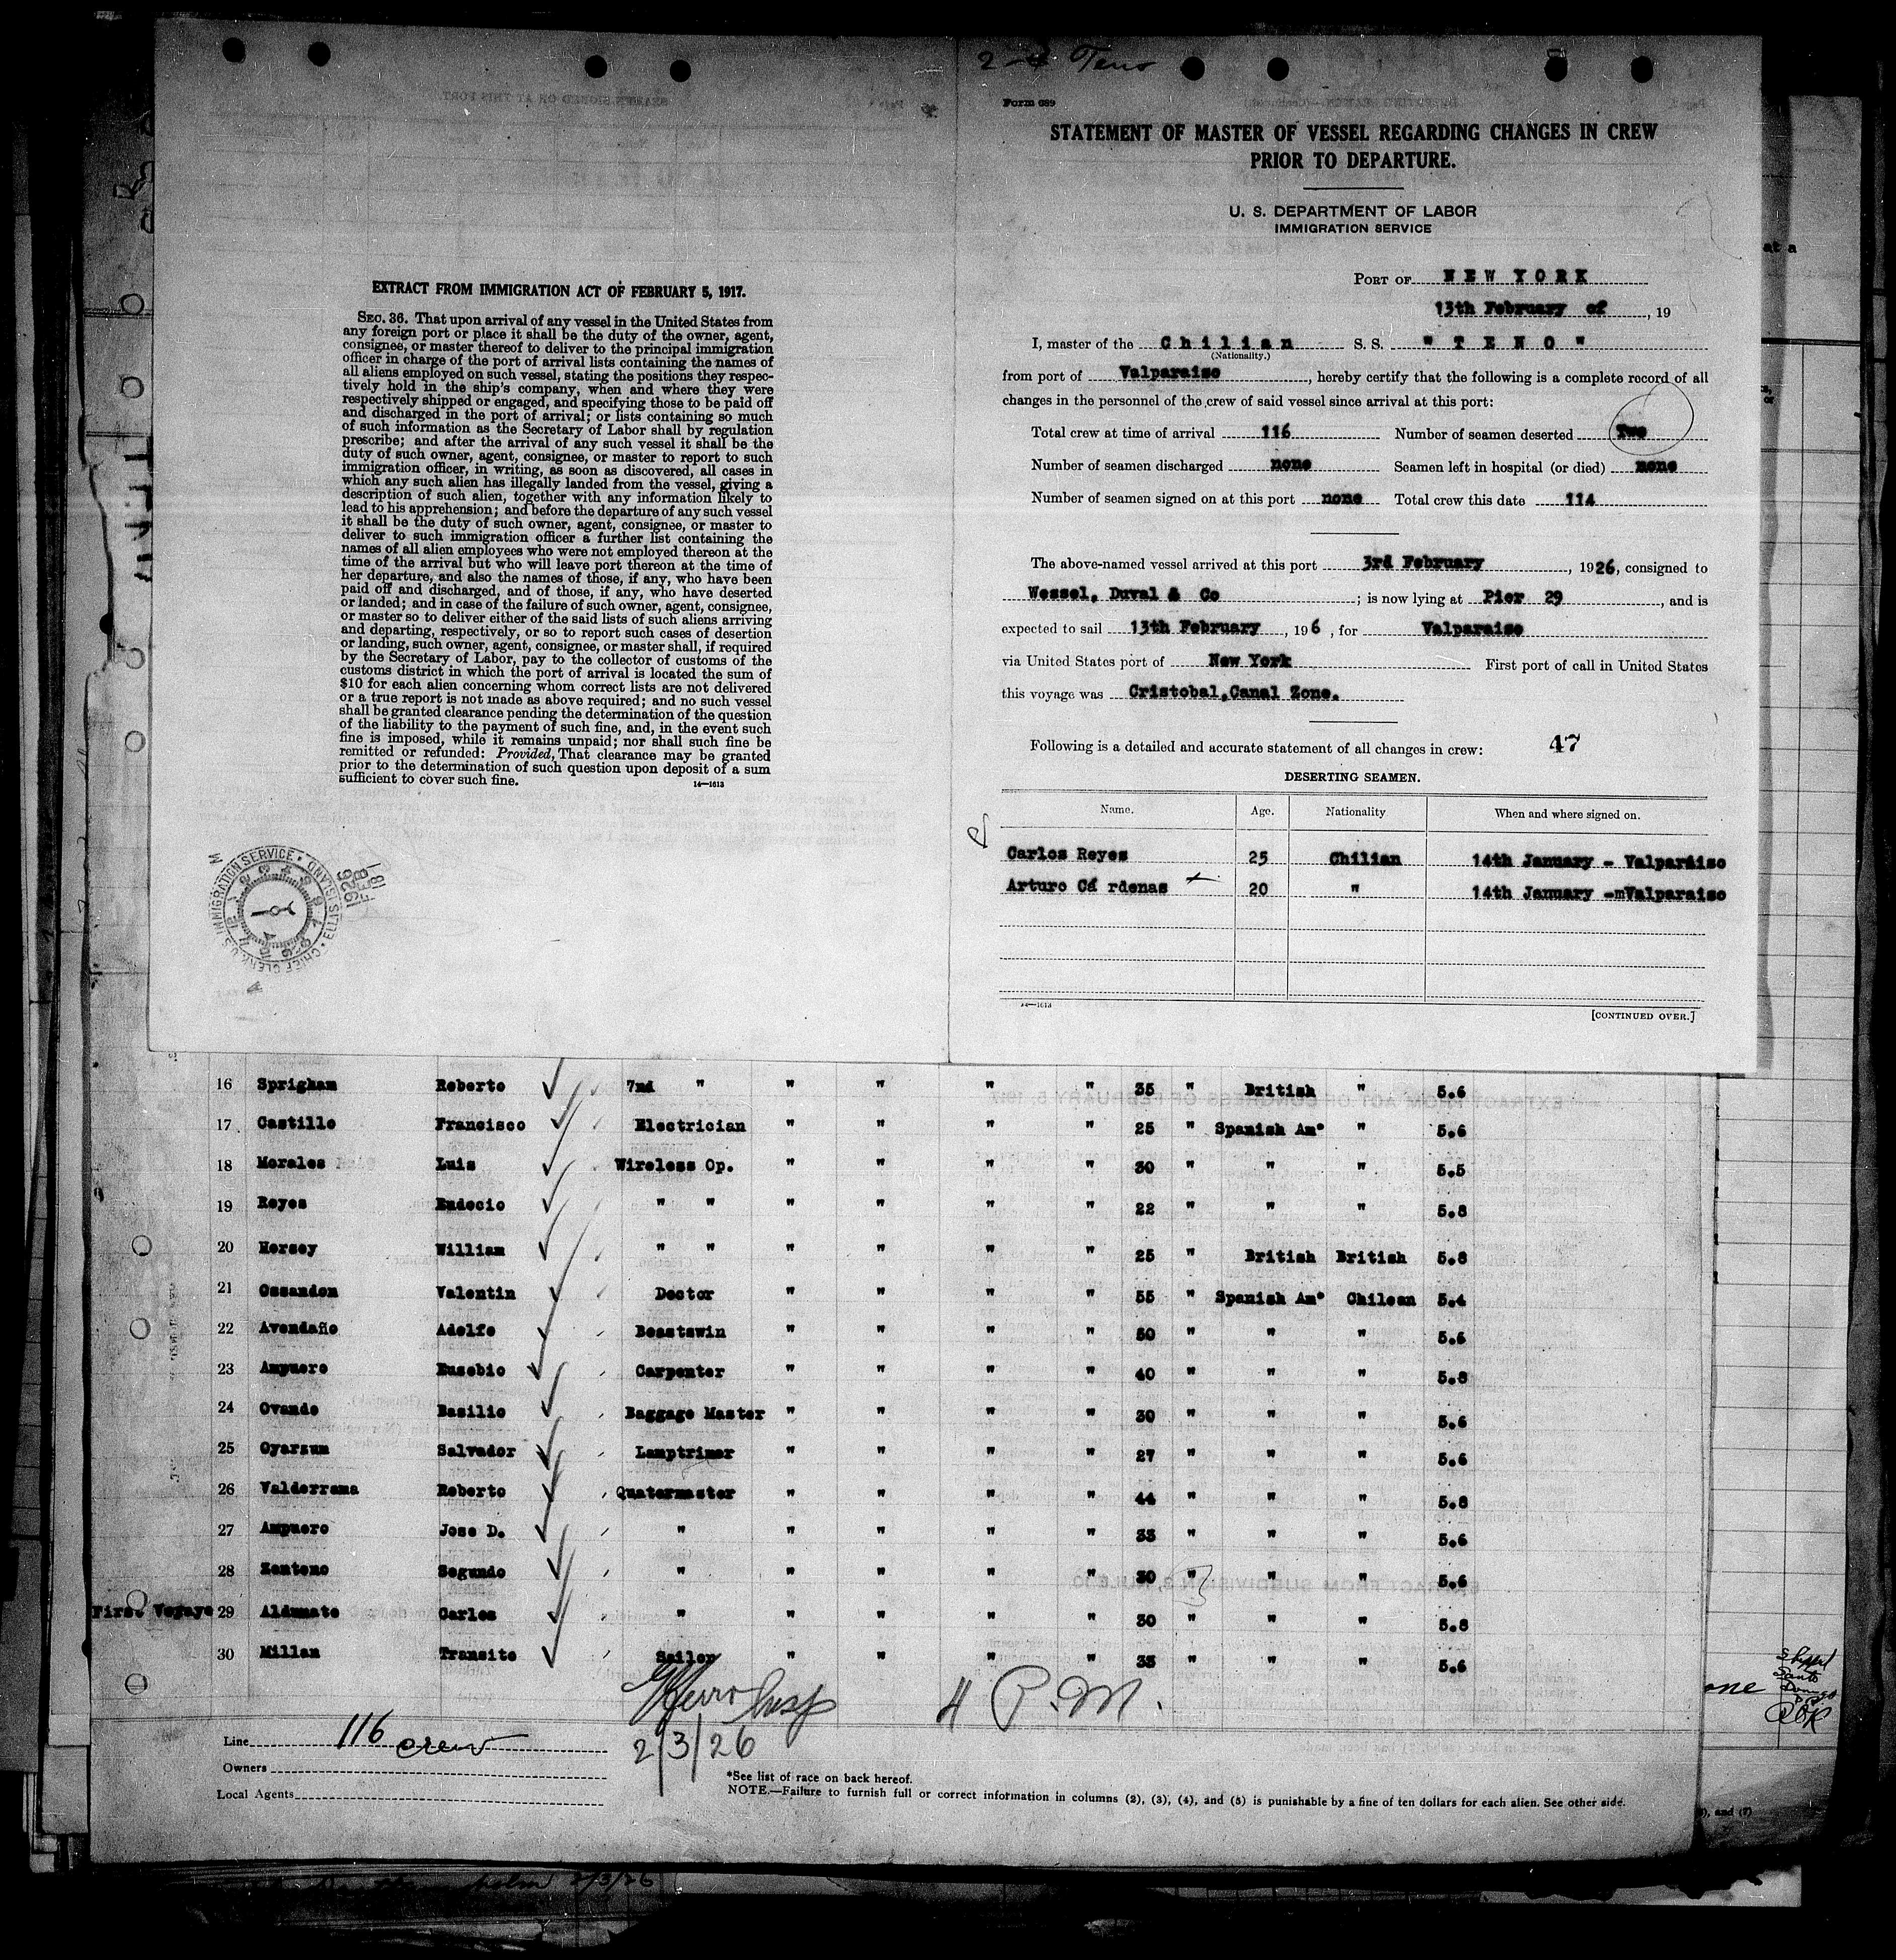 2 Teno
Form 689
STATEMENT OF MASTER OF VESSEL REGARDING CHANGES IN CREW
PRIOR TO DEPARTURE.
U. S. DEPARTMENT OF LABOR
IMMIGRATION SERVICE
PORT OF NEW YORK
13th February of, 19
I, master of the Chilian S. S. "TENO"
(Nationality.)
from port of Valparaiso, hereby certify that the following is a complete record of all
changes in the personnel of the crew of said vessel since arrival at this port:
Total crew at time of arrival 116 Number of seamen deserted Two
Number of seamen discharged none Seamen left in hospital (or died) none
Number of seamen signed on at this port none Total crew this date 114
The above-named vessel arrived at this port 3rd February, 1926, consigned to
Wessel, Duval & Co; is now lying at Pier 29, and is
expected to sail 13th February, 196, for Valparaiso
via United States port of New York First port of call in United States
this voyage was Cristobal,Canal Zone.
Following is a detailed and accurate statement of all changes in crew: 47
DESERTING SEAMEN.
Name. Age. Nationality When and where signed on.
Carlos Reyes 25 Chilian 14th January - Valparaiso
Arturo Cá rdenas 20 " 14th January -mValparaiso
14—1613
[CONTINUED OVER.]
EXTRACT FROM IMMIGRATION ACT OF FEBRUARY 5, 1917.
SEC. 36. That upon arrival of any vessel in the United States from
any foreign port or place it shall be the duty of the owner, agent,
consignee, or master thereof to deliver to the principal immigration
officer in charge of the port of arrival lists containing the names of
all aliens employed on such vessel, stating the positions they respec-
tively hold in the ship's company, when and where they were
respectively shipped or engaged, and specifying those to be paid off
and discharged in the port of arrival; or lists containing so much
of such information as the Secretary of Labor shall by regulation
prescribe; and after the arrival of any such vessel it shall be the
duty of such owner, agent, consignee, or master to report to such
immigration officer, in writing, as soon as discovered, all cases in
which any such alien has illegally landed from the vessel, giving a
description of such alien, together with any information likely to
lead to his apprehension; and before the departure of any such vessel
it shall be the duty of such owner, agent, consignee, or master to
deliver to such immigration officer a further list containing the
names of all alien employees who were not employed thereon at the
time of the arrival but who will leave port thereon at the time of
her departure, and also the names of those, if any, who have been
paid off and discharged, and of those, if any, who have deserted
or landed; and in case of the failure of such owner, agent, consignee,
or master so to deliver either of the said lists of such aliens arriving
and departing, respectively, or so to report such cases of desertion
or landing, such owner, agent, consignee, or master shall, if required
by the Secretary of Labor, pay to the collector of customs of the
customs district in which the port of arrival is located the sum of
$10 for each alien concerning whom correct lists are not delivered
or a true report is not made as above required; and no such vessel
shall be granted clearance pending the determination of the question
of the liability to the payment of such fine, and, in the event such
fine is imposed, while it remains unpaid; nor shall such fine be
remitted or refunded: Provided, That clearance may be granted
prior to the determination of such question upon deposit of a sum
sufficient to cover such fine.
14—1613
CHIEF CLERK, U.S. IMMIGRATION SERVICE • ELLIS ISLAND
1926 FEB 18
16 Sprigham Roberto 7nd " " " " " 35 " British " 5.6
17 Castillo Francisco Electrician " " " " 25 " Spanish Am* " 5.6
18 Morales Luis Wireless Op. " " " " 30 " " " 5.5
19 Reyes Eudocio " " " " " " 22 " " " 5.8
20 Hersey William " " " " " " 25 " British British 5.8
21 Ossandon Valentin Doctor " " " " 55 " Spanish Am* Chilean 5.4
22 Avendaño Adolfo Boastswin " " " " 50 " " " 5.6
23 Ampuero Eusebio Carpenter " " " " 40 " " " 5.8
24 Ovando Basilio Baggage Master " " " " 30 " " " 5.6
25 Oyarzun Salvador Lamptrimer " " " " 27 " " " 5.6
26 Valderrama Roberto Quatermaster " " " " 44 " " " 5.8
27 Ampuero Jose D. " " " " " 33 " " " 5.6
28 Zenteno Segundo " " " " " 30 " " " 5.6
First Voyaye 29 Aldunate Carlos " " " " " 30 " " " 5.8
30 Millan Transito Sailor " " " " 35 " " " 5.6
Insp 4 P.M.
2/3/26
Line 116 crew
Owners
Local Agents
*See list of race on back hereof.
NOTE.—Failure to furnish full or correct information in columns (2), (3), (4), and (5) is punishable by a fine of ten dollars for each alien. See other side.
), and (7)